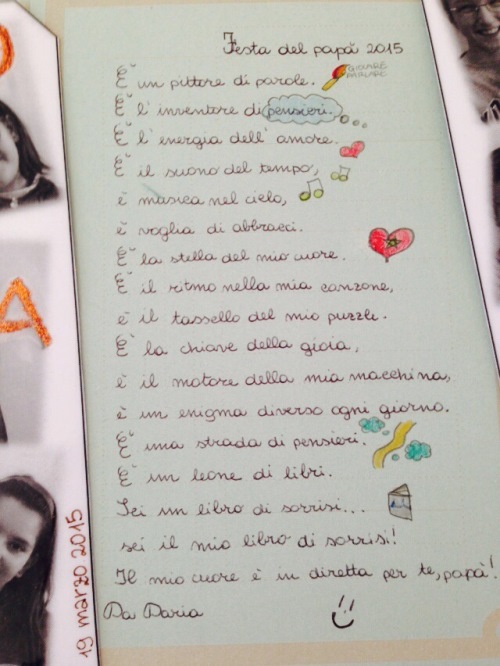 Festa del papà 2015
È un pittore di parole.
GIOIARE
PARLARE
È l'inventore di pensieri.
È l'energia dell'amore.
È il suono del tempo,
è musica nel cielo,
è voglia di abbracci.
È la stella del mio cuore.
È il ritmo nella mia canzone,
è il tassello del mio puzzle.
È la chiave della gioia,
è il motore della mia macchina,
è un enigma diverso ogni giorno.
È una strada di pensieri.
È un leone di libri.
Sei un libro di sorrisi...
sei il mio libro di sorrisi!
Il mio cuore è in diretta per te, papà!
Da Daria
19 marzo 2015
A